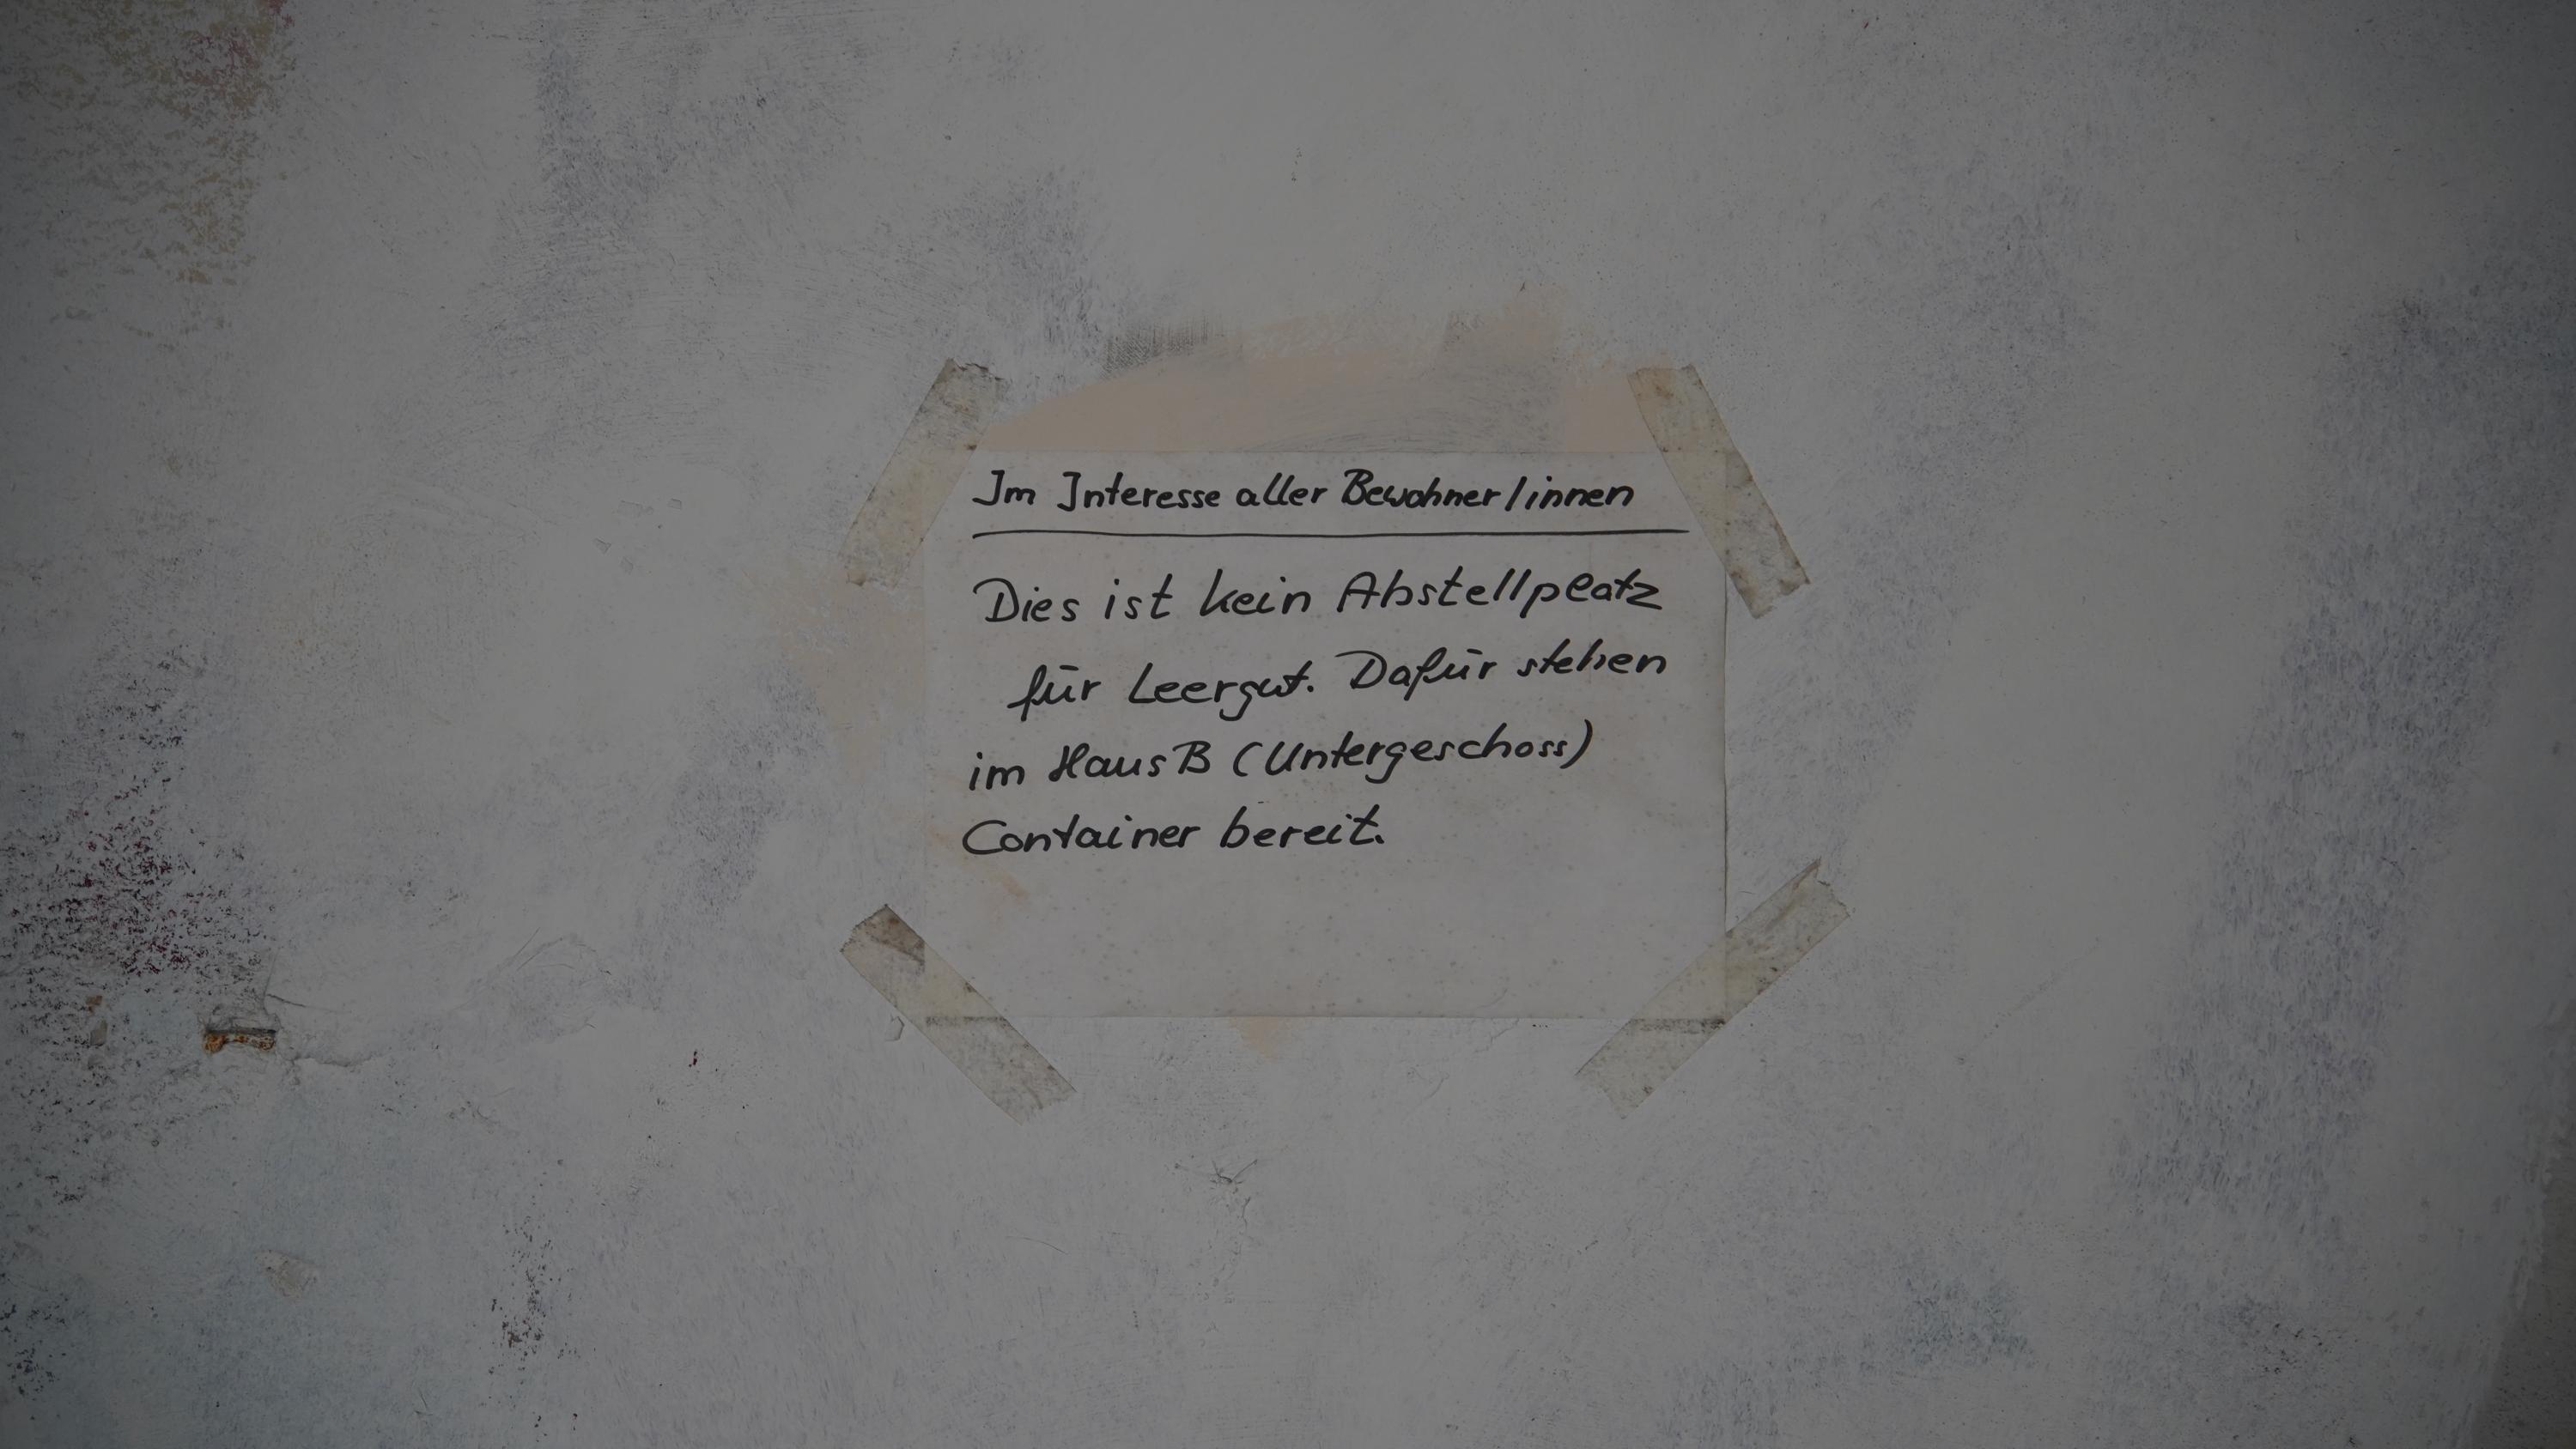 Im Interesse aller Bewohner/innen
Dies ist kein Abstellplatz
für Leergut. Dafür stehen
im Haus B (Untergeschoss)
Container bereit.